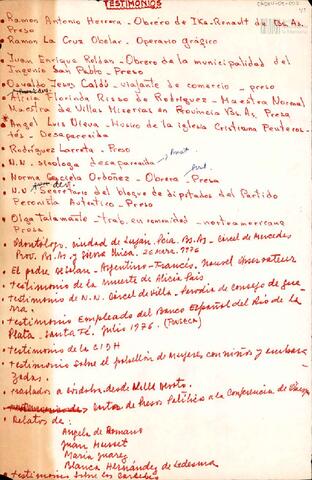 TESTIMONIOS
Ramon Antonio Herrera - Obrero de Ika-Renault de Bs. As.
Preso
Ramon La Cruz Obelar - Operario gráfico
Juan Enrique Roldan - Obrero de la municipalidad del
Ingenio San Pablo - Preso
Osvaldo Jesus Caldú - viajante de comercio - preso
Alicia Florinda Risso de Rodriguez - Maestra Normal
Maestra de Villas Miserias en Provincia Bs. As. Presa
Angel Luis - Músico de la iglesia Cristiana Pentecos-
tés - Desaparecido
Rodriguez Larreta - Preso
N.N. sicologa desaparecida
Norma Graciela Ordoñez - Obrera - Presa
N.N Secretario del bloque de diputados del Partido
Peronista Autentico - Preso
Olga Talamante - trab. en comunidad - norteamericana
Presa
Odontólogo. ciudad de Luján. Pcia. Bs. As - Cárcel de Mercedes
Prov. Bs. As y Sierra Chica. 1976
El padre - Argentino-Francés. Nouvel Observateur
testimonio de la muerte de Alicia País
testimonio de N.N. Cárcel de Villa - Parodia de consejo de gue
rra.
testimonio Empleado del Banco Español del Rio de La
Plata. Santa Fé. Julio 1976.
testimonio de la CIDH
testimonio sobre el pabellón de mujeres con niños y embara
zadas.
traslados a córdoba desde
Carta de Presos Políticos a la Conferencia de
Relatos de:
Angela de Romano
Juan
Maria Juarez
Blanca Hernández de Ledesma
testimonios sobre los